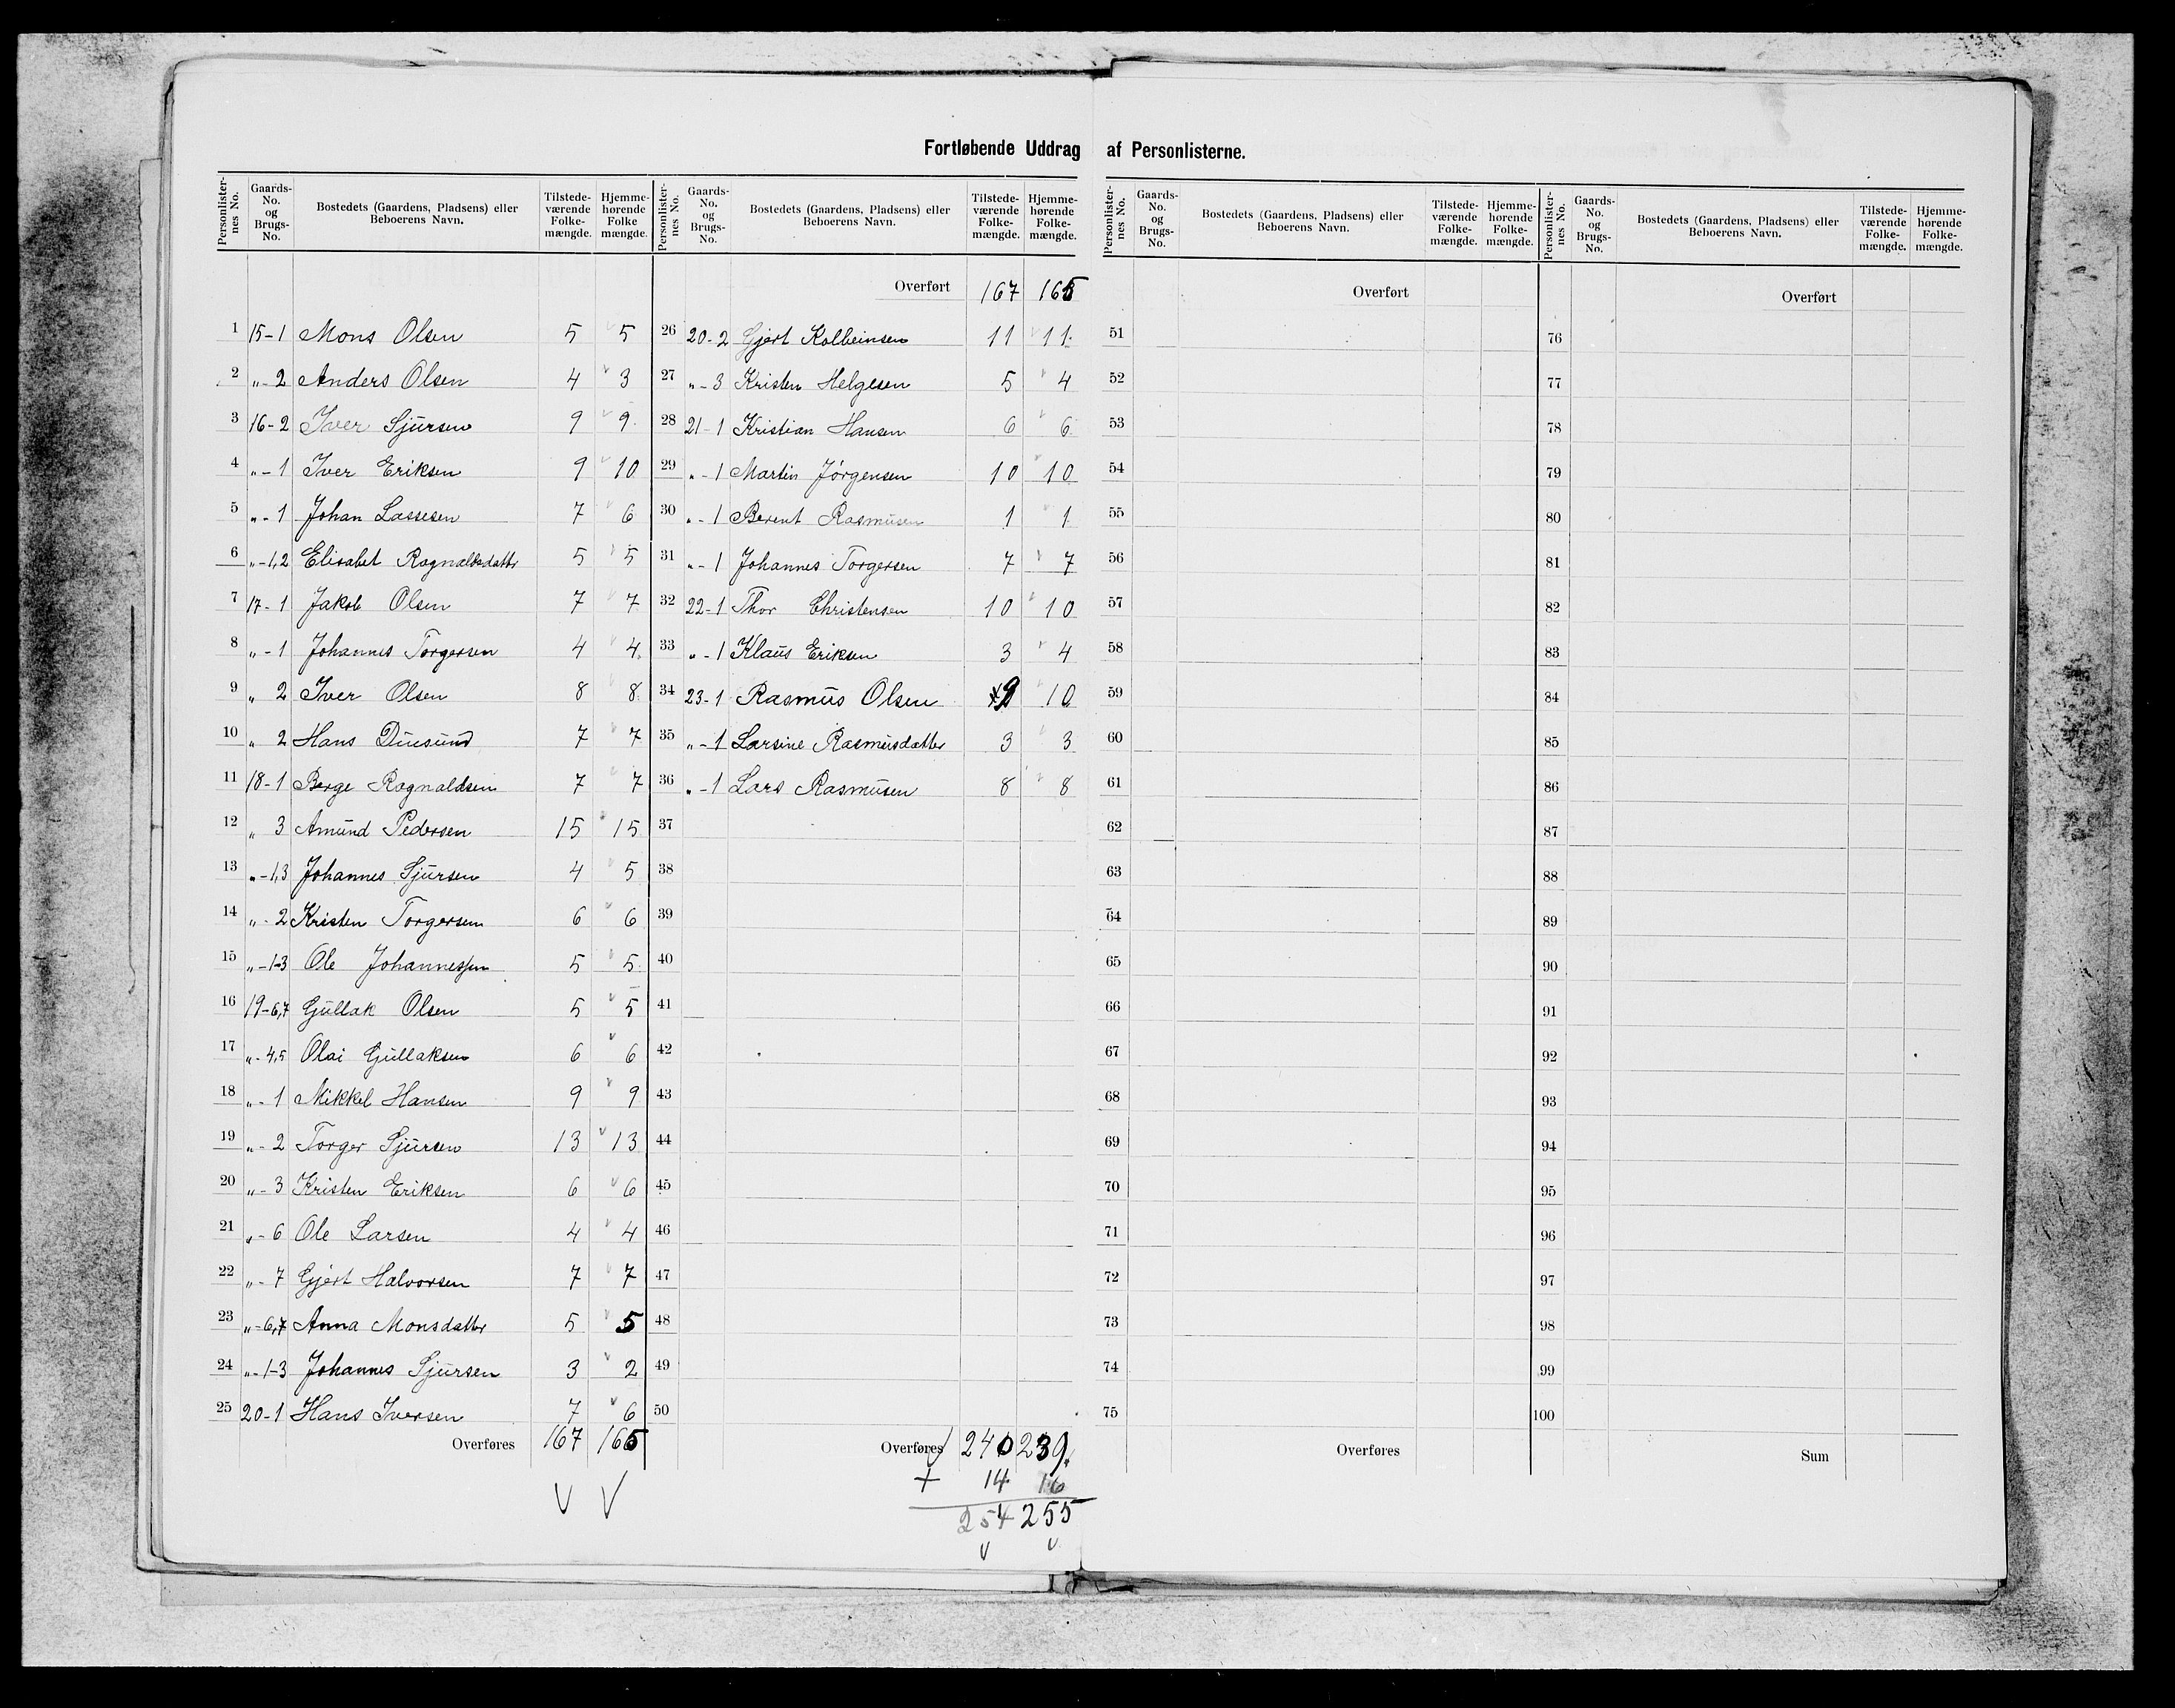 Fortløbende Uddrag af Personlisterne.
Personlister-nes No. Gaards-No. og Brugs-No. Bostedets (Gaardens, Pladsens) eller Beboerens Navn. Tilstede-værende Folke-mængde. Hjemme-hørende Folke mængde.
1 15-1 Mons Olsen 5 5
2 „-2 Anders Olsen 4 3
3 16-2 Iver Sjursen 9 9
4 „-1 Iver Eriksen 9 10
5 „-1 Johan Lassesen 7 6
6 „-1,2 Elisabet Ragnaldsdatter 5 5
7 17-1 Jakob Olsen 7 7
8 „-1 Johannes Torgersen 4 4
9 „ 2 Iver Olsen 8 8
10 „ 2 Hans Duesund 7 7
11 18-1 Berge Ragnaldsen 7 7
12 „ 3 Amund Pedersen 15 15
13 „-1,3 Johannes Sjursen 4 5
14 „-2 Kristen Torgersen 6 6
15 „-1-3 Ole Johannessen 5 5
16 19-6,7 Gullak Olsen 5 5
17 „-4,5 Olai Gullaksen 6 6
18 „-1 Mikkel Hansen 9 9
19 „-2 Torger Sjursen 13 13
20 „-3 Kristen Eriksen 6 6
21 „-6 Ole Larsen 4 4
22 „-7 Gjert Halvorsen 7 7
23 „-6,7 Anna Monsdatter 5 5
24 „-1-3 Johannes Sjursen 3 2
25 20-1 Hans Iversen 7 6
Overføres 167 165
Personlister-nes No. Gaards-No. og Brugs-No. Bostedets (Gaardens, Pladsens) eller Beboerens Navn. Tilstede-værende Folke-mængde. Hjemme-hørende Folke-mængde.
Overført 167 165
26 20-2 Gjert Kolbeinsen 11 11
27 „-3 Kristen Helgesen 5 4
28 21-1 Kristian Hansen 6 6
29 „-1 Martin Jörgensen 10 10
30 „-1 Berent Rasmusen 1 1
31 „-1 Johannes Torgersen 7 7
32 22-1 Thor Christensen 10 10
33 „-1 Klaus Eriksen 3 4
34 23-1 Rasmus Olsen 9 10
35 „-1 Larsine Rasmusdatter 3 3
36 „-1 Lars Rasmusen 8 8
37
38
39
40
41
42
43
44
45
46
47
48
49
50
Overføres 240 239
+ 14 16
254 255
Personlister-nes No. Gaards-No. og Brugs-No. Bostedets (Gaardens, Pladsens) eller Beboerens Navn. Tilstede-værende Folke-mængde. Hjemme-hørende Folke-mængde.
Overført
51
52
53
54
55
56
57
58
59
60
61
62
63
64
65
66
67
68
69
70
71
72
73
74
75
Overføres
Personlister-nes No. Gaards-No. og Brugs-No. Bostedets (Gaardens, Pladsens) eller Beboerens Navn. Tilstede-værende Folke-mængde. Hjemme-hørende Folke-mængde.
Overført
76
77
78
79
80
81
82
83
84
85
86
87
88
89
90
91
92
93
94
95
96
97
98
99
100
Sum